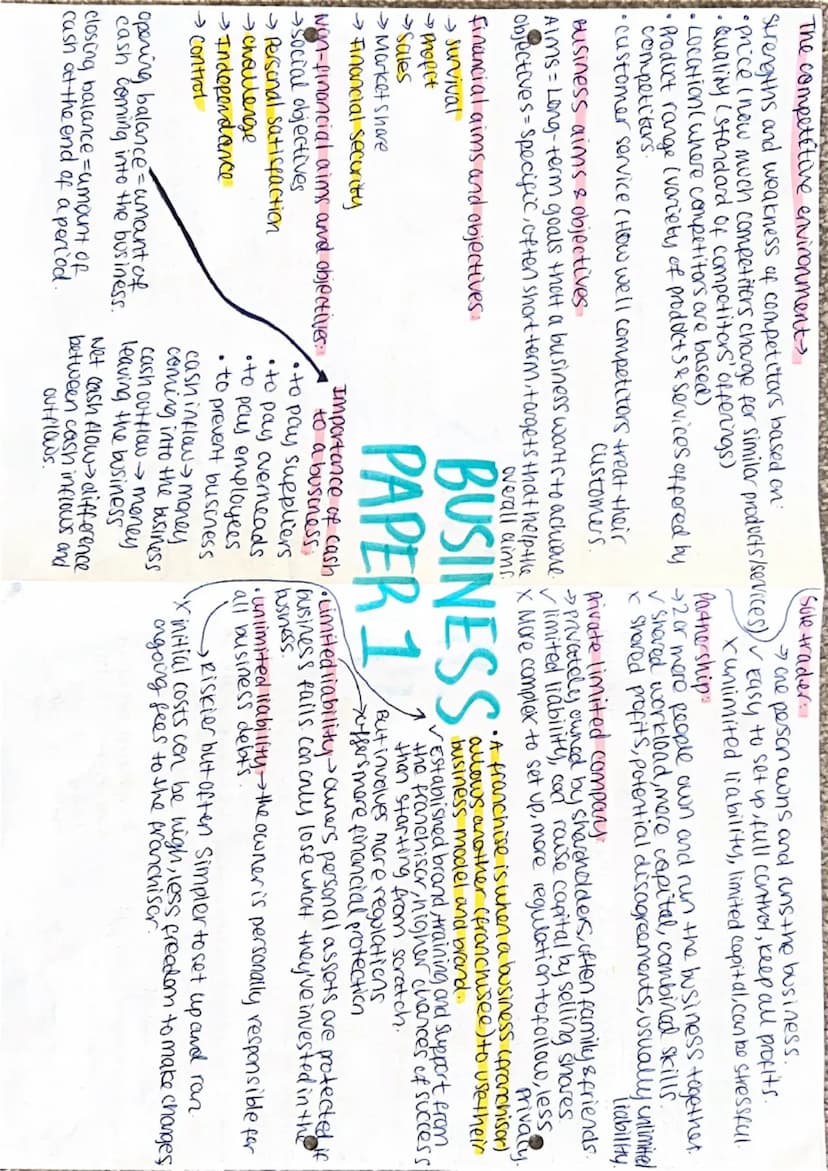 The competitive environment→
Strengths and weakness of competitors based on:
• price (how much competitors charge for similar products/services)
• Quality (standard of competitors' offerings)
• Location (where competitors are based)
• Product range (variety of products & services offered by
competitors.
• customer service (How well competitors treat their
customers.
Business aims & objectives
Aims = Long-term goals that a business wants to achieve.
objectives = specific, often short term, targets that help the
overall aims.
Financial aims and objectives:
→ survival
→ profit
→ sales
→ Market share
→ Financial security
Non-financial aims and objectives:
→ Social objectives
→ Personal satisfaction
→ challenge
→ Independence
→ control
opening balance = amount of
cash coming into the business.
closing balance = amount of
cash at the end of a period.
Importance of cash
to a business:
• to pay suppliers
• to pay overheads
• to pay employees
• to prevent business
cash inflow → money
coming into the business
cash outflow → money
leaving the business
Net cash flow → difference
between cash inflows and
outflows.
BUSINESS
PAPER 1
Sole trader:
→ one person owns and runs the business.
✓ Easy to set up, full control, keep all profits.
x unlimited liability, limited capital, can be stressful.
Partnership:
→ 2 or more people own and run the business together.
✓ shared workload, more capital, combined skills
x shared profits, potential disagreements, usually unlimited
liability.
Private limited company:
→ privately owned by shareholders, often family & friends.
✓ limited liability, can raise capital by selling shares
x More complex to set up, more regulation to follow, less
privacy.
• A franchise is when a business (franchisor)
allows another (franchisee) to use their
business model and brand.
✓ Established brand, training and support from
the franchisor, higher chances of success
than starting from scratch.
But involves more regulations
→ offers more financial protection
• Limited liability → owners personal assets are protected if
business fails. can only lose what they've invested in the
business.
• unlimited liability → the owner is personally responsible for
all business debts.
→ Riskier but often simpler to set up and run
x initial costs can be high, less freedom to make changes
ongoing fees to the franchisor.